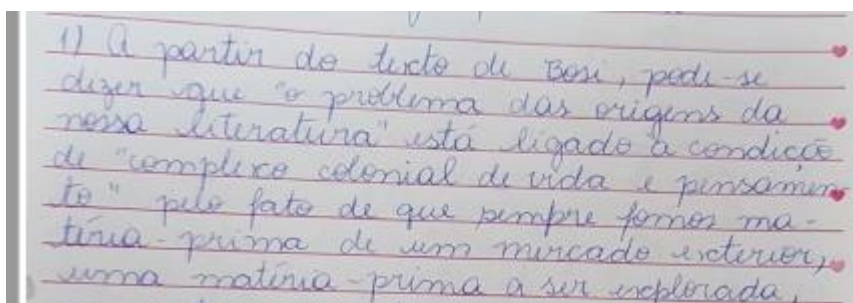 1) A partir do texto de Bosi, pode-se
dizer que "o problema das origens da
nossa literatura" está ligado à condição
de "complexo colonial de vida e pensamen
to" pelo fato de que sempre fomos ma-
téria-prima de um mercado exterior,
uma matéria-prima a ser explorada.